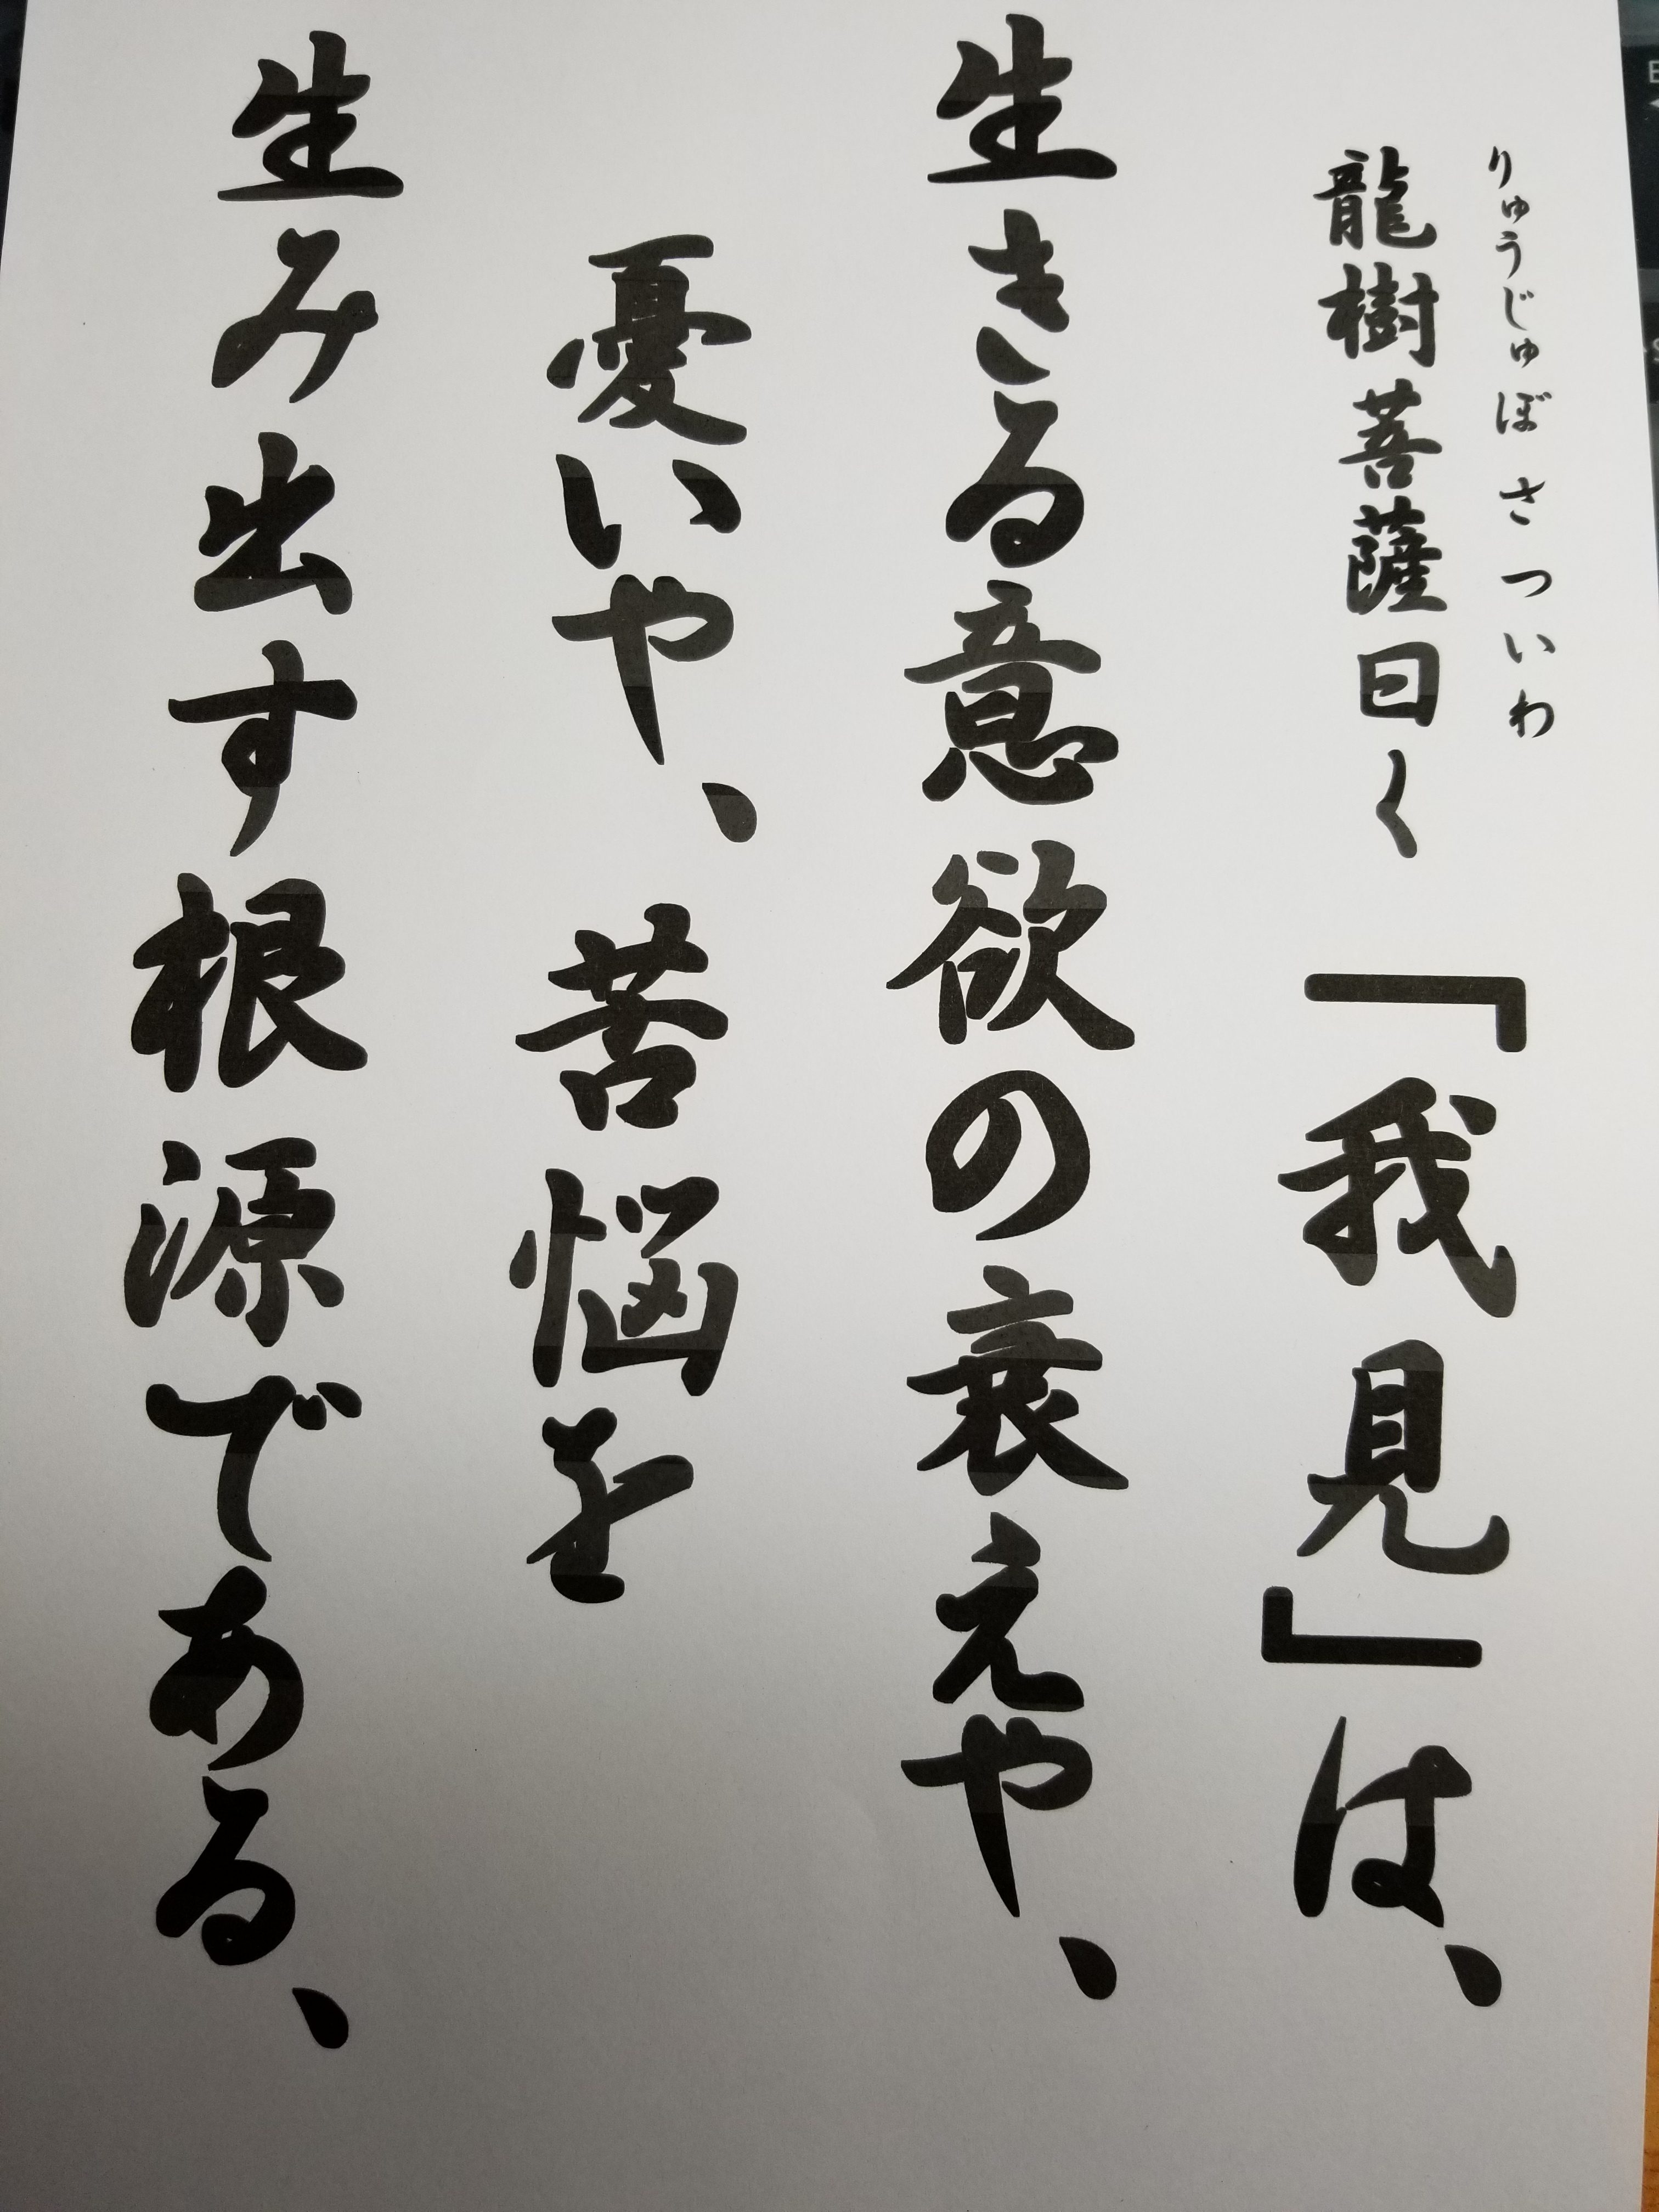 りゅうじゅぼさついわ
龍樹菩薩曰く「我見」は、
生きる意欲の衰えや、
憂いや、苦悩を
生み出す根源である、